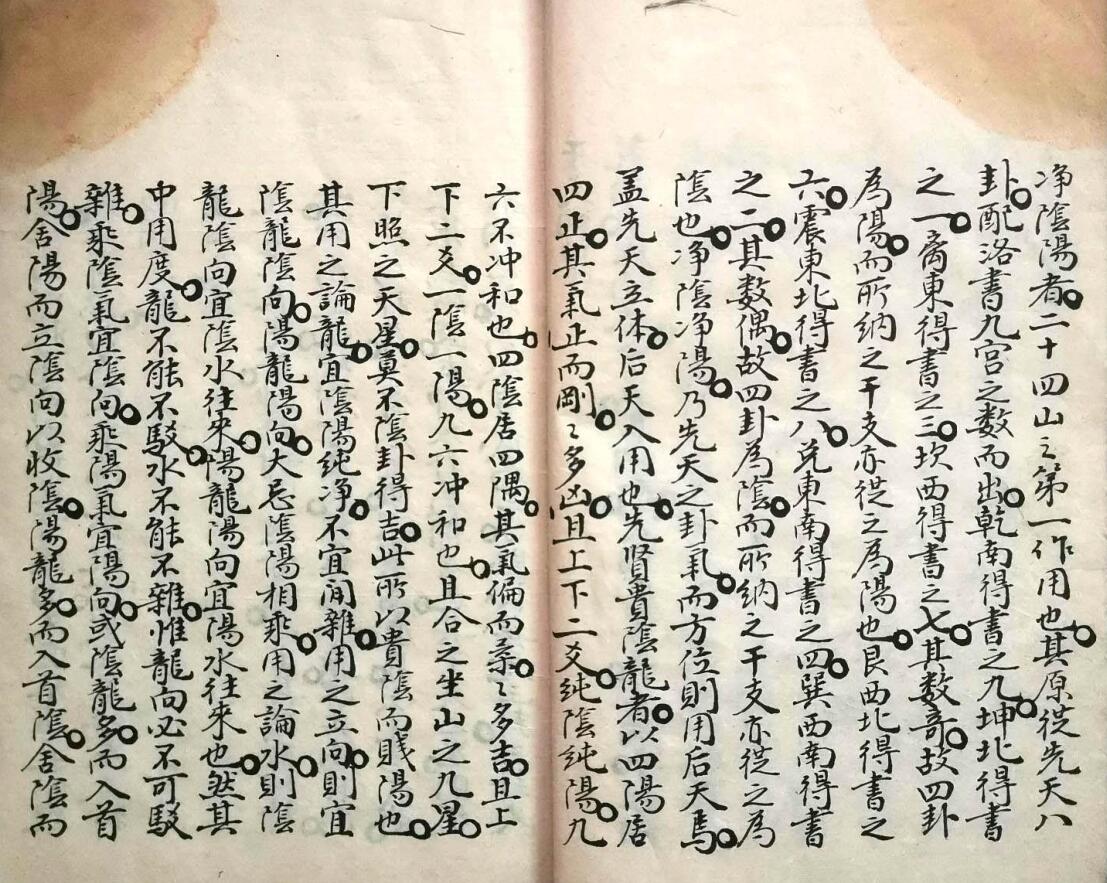 净陰陽者二十四山之第一作用也其原從先天八
卦配洛書九宫之数而出乾南得書之九坤北得書
之一离東得書之三坎西得書之七其数竒故四卦
為陽而所納之干支亦從之為陽也艮西北得書之
六震東北得書之八兑東南得書之四巽西南得書
之二其数偶故四卦為陰而所納之干支亦從之為
陰也净陰净陽乃先天之卦氣而方位則用后天焉
盖先天立体后天入用也先贤貴陰龍者以四陽居
四正其氣正而剛〻多凶且上下二爻純陰純陽九
六不冲和也四陰居四隅其氣偏而柔〻多吉且上
下二爻一陰一陽九六冲和也且合之坐山之九星
下照之天星莫不陰卦得吉此所以貴陰而贱陽也
其用之論龍宜陰陽純净不宜间雜用之立向則宜
陰龍陰向陽龍陽向大忌陰陽相乘用之論水則陰
龍陰向宜陰水往來陽龍陽向宜陽水往來也然其
中用度龍不能不駁水不能不雜惟龍向必不可駁
雜乘陰氣宜陰向乘陽氣宜陽向或陰龍多而入首
陽舍陽而立陰向以收陰陽龍多而入首陰舍陰而